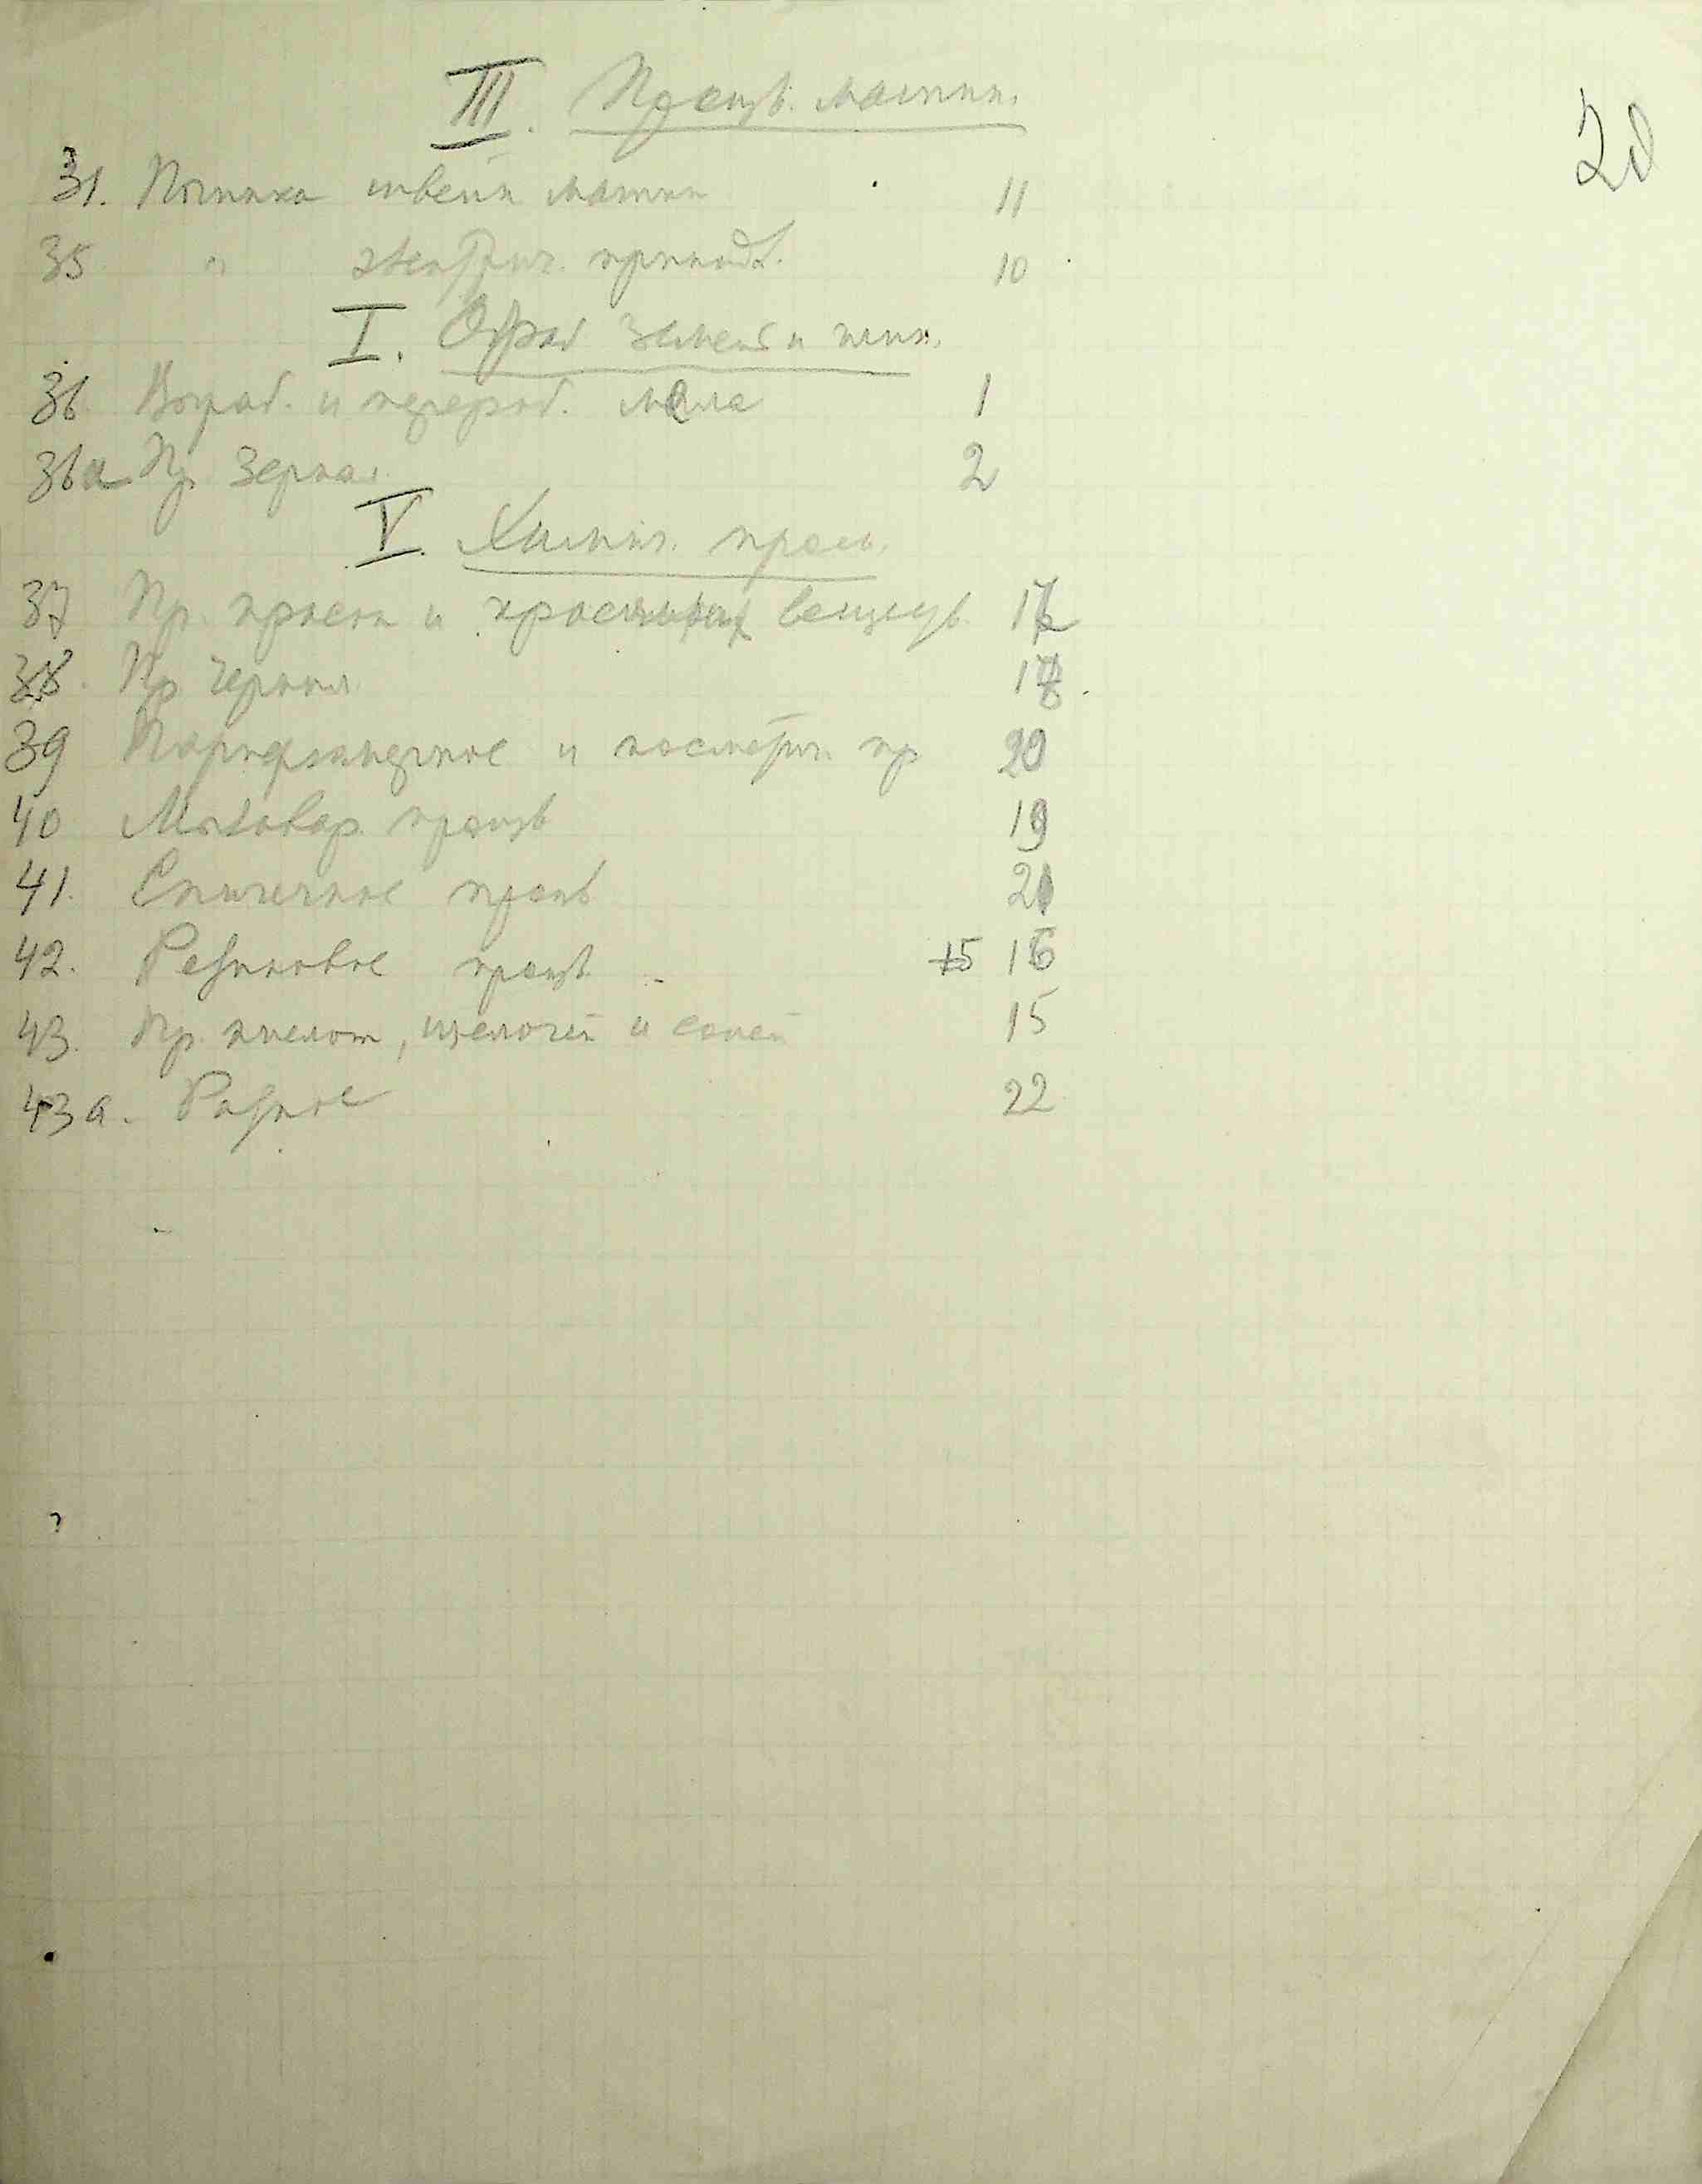 20
III. Произв. машин.
31. Починка швейн машин 11
35 " электрич. принадл. 10
I. Обраб земель и глин.
36 Выраб. и перераб. мела 1
36а Пр. Зеркал. 2
V. Химич. пром.
37 Пр. красок и красильных веществ. 17
38. Пр чернил. 18
39 Парфюмерное и косметич. пр 20
40 Мыловар. произв 19
41. Спичечное произв 21
42. Резиновое произв. 15 16
43. Пр. кислот, щелочей и солей 15
43а. Разное 22